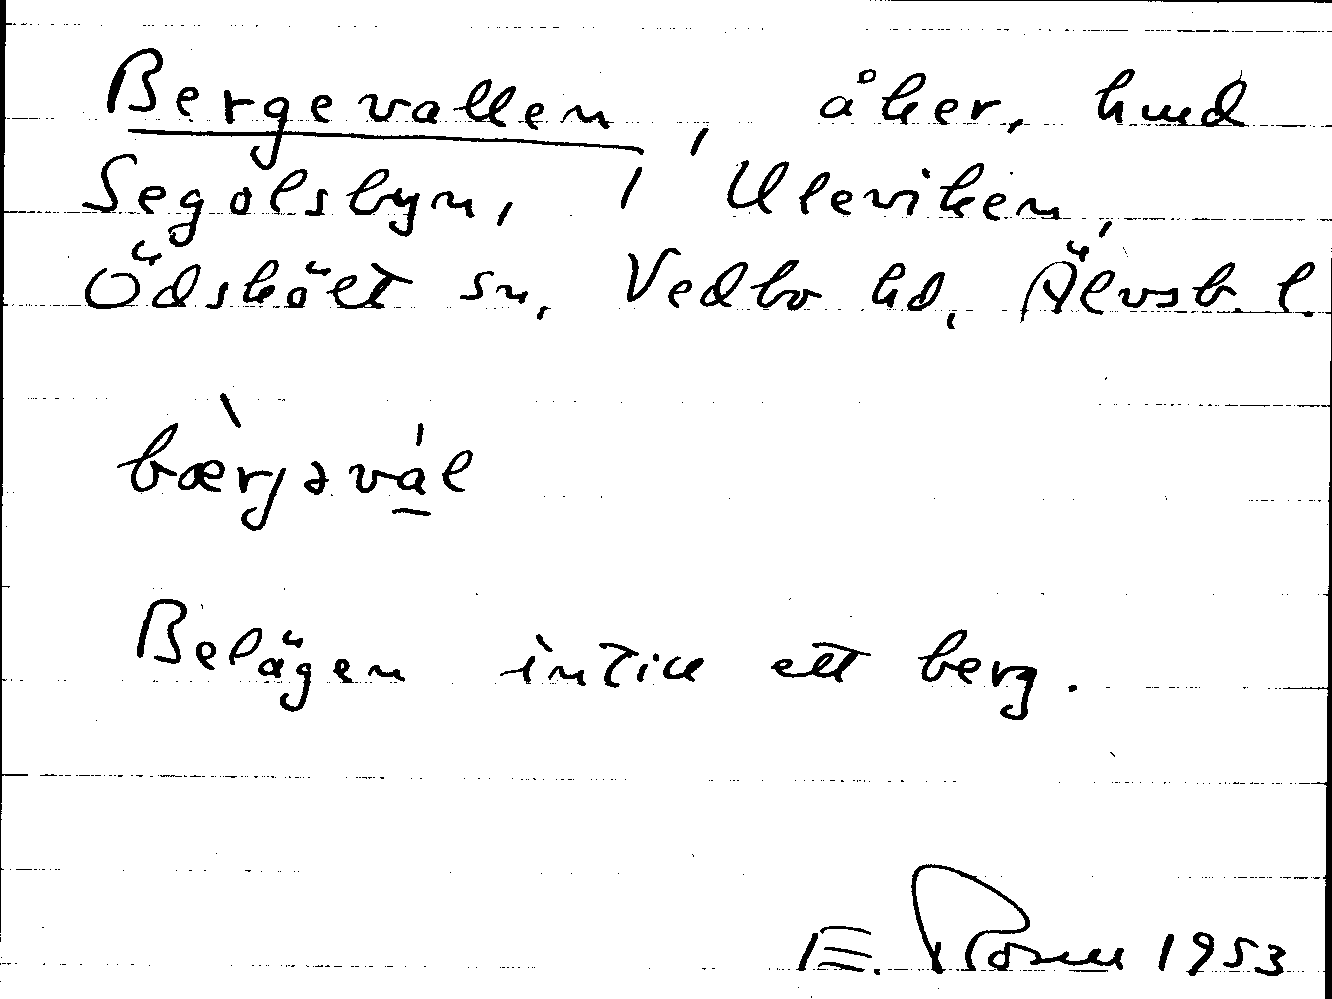 Bergevallen, åker, hmd
Segolsbyn, 1 Uleviken,
Ödskölt sn, Vedbo hd, Älvsb. l.
bærjəvál
Belägen intill ett berg.
E. Rosell 1953